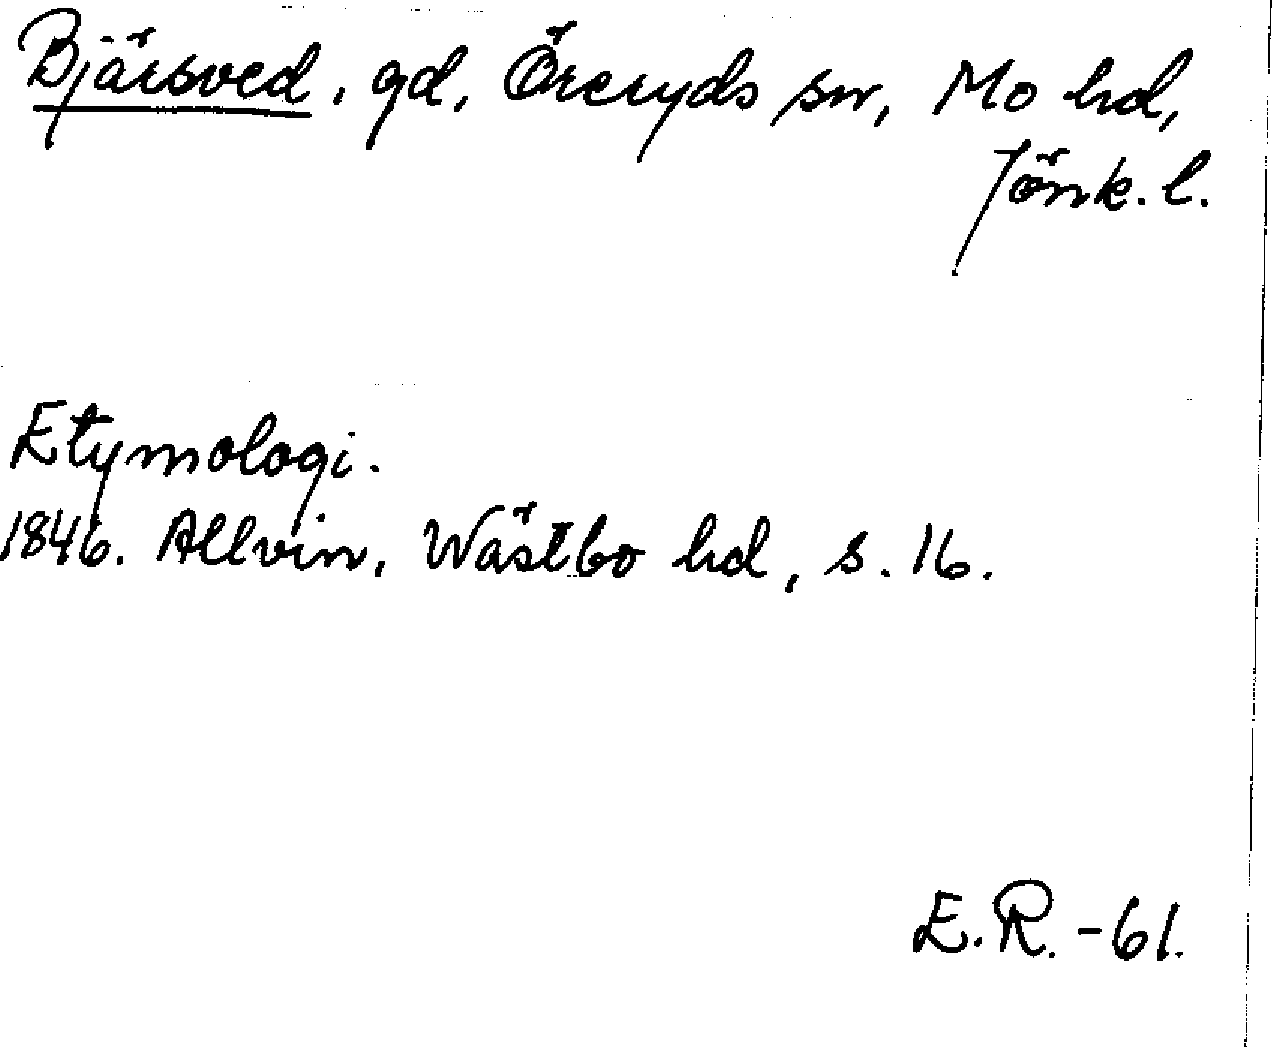 Bjärsved, gd, Öreryds sn, Mo hd,
Jönk. l.
Etymologi.
1846. Allvin, Wästbo hd, s. 16.
E.R. -61.